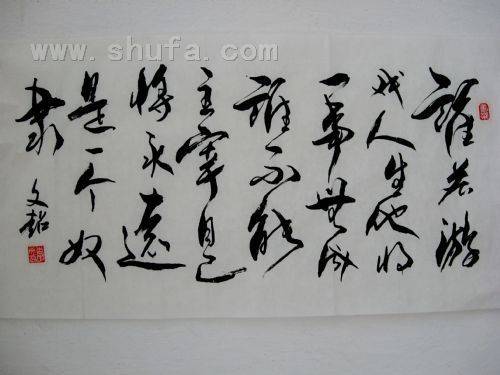 www.shufa.com
誰若游
戏人生他将
一事無成
誰不能
主宰自己
將永遠
是一个奴
隸
文